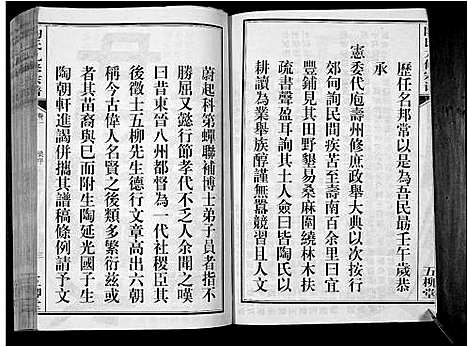 歷任名邦常以是為吾民勗壬午歲恭
承
憲委代庖壽州修庶政舉大典或以時
郊旬詢民間疾苦至壽南百餘里曰宜
豐鋪見其田野墾易桑麻圍繞林木扶
疏書聲盈耳詢其土人僉曰皆陶氏以
耕讀為業舉族醇謹無囂競習且人文
五柳堂
蔚起科第蟬聯補博士弟子員者指不
勝屈又懿行節孝代不乏人余聞之嘆
曰昔東晉八州都督為一代社稷臣其
後徵士五柳先生德行文章高出六朝
稱今古偉人名賢之後類多繁衍或然
者其然與巳而附生陶延光國子生
陶朝軒進謁併攜其譜稿條例請予文
卷一